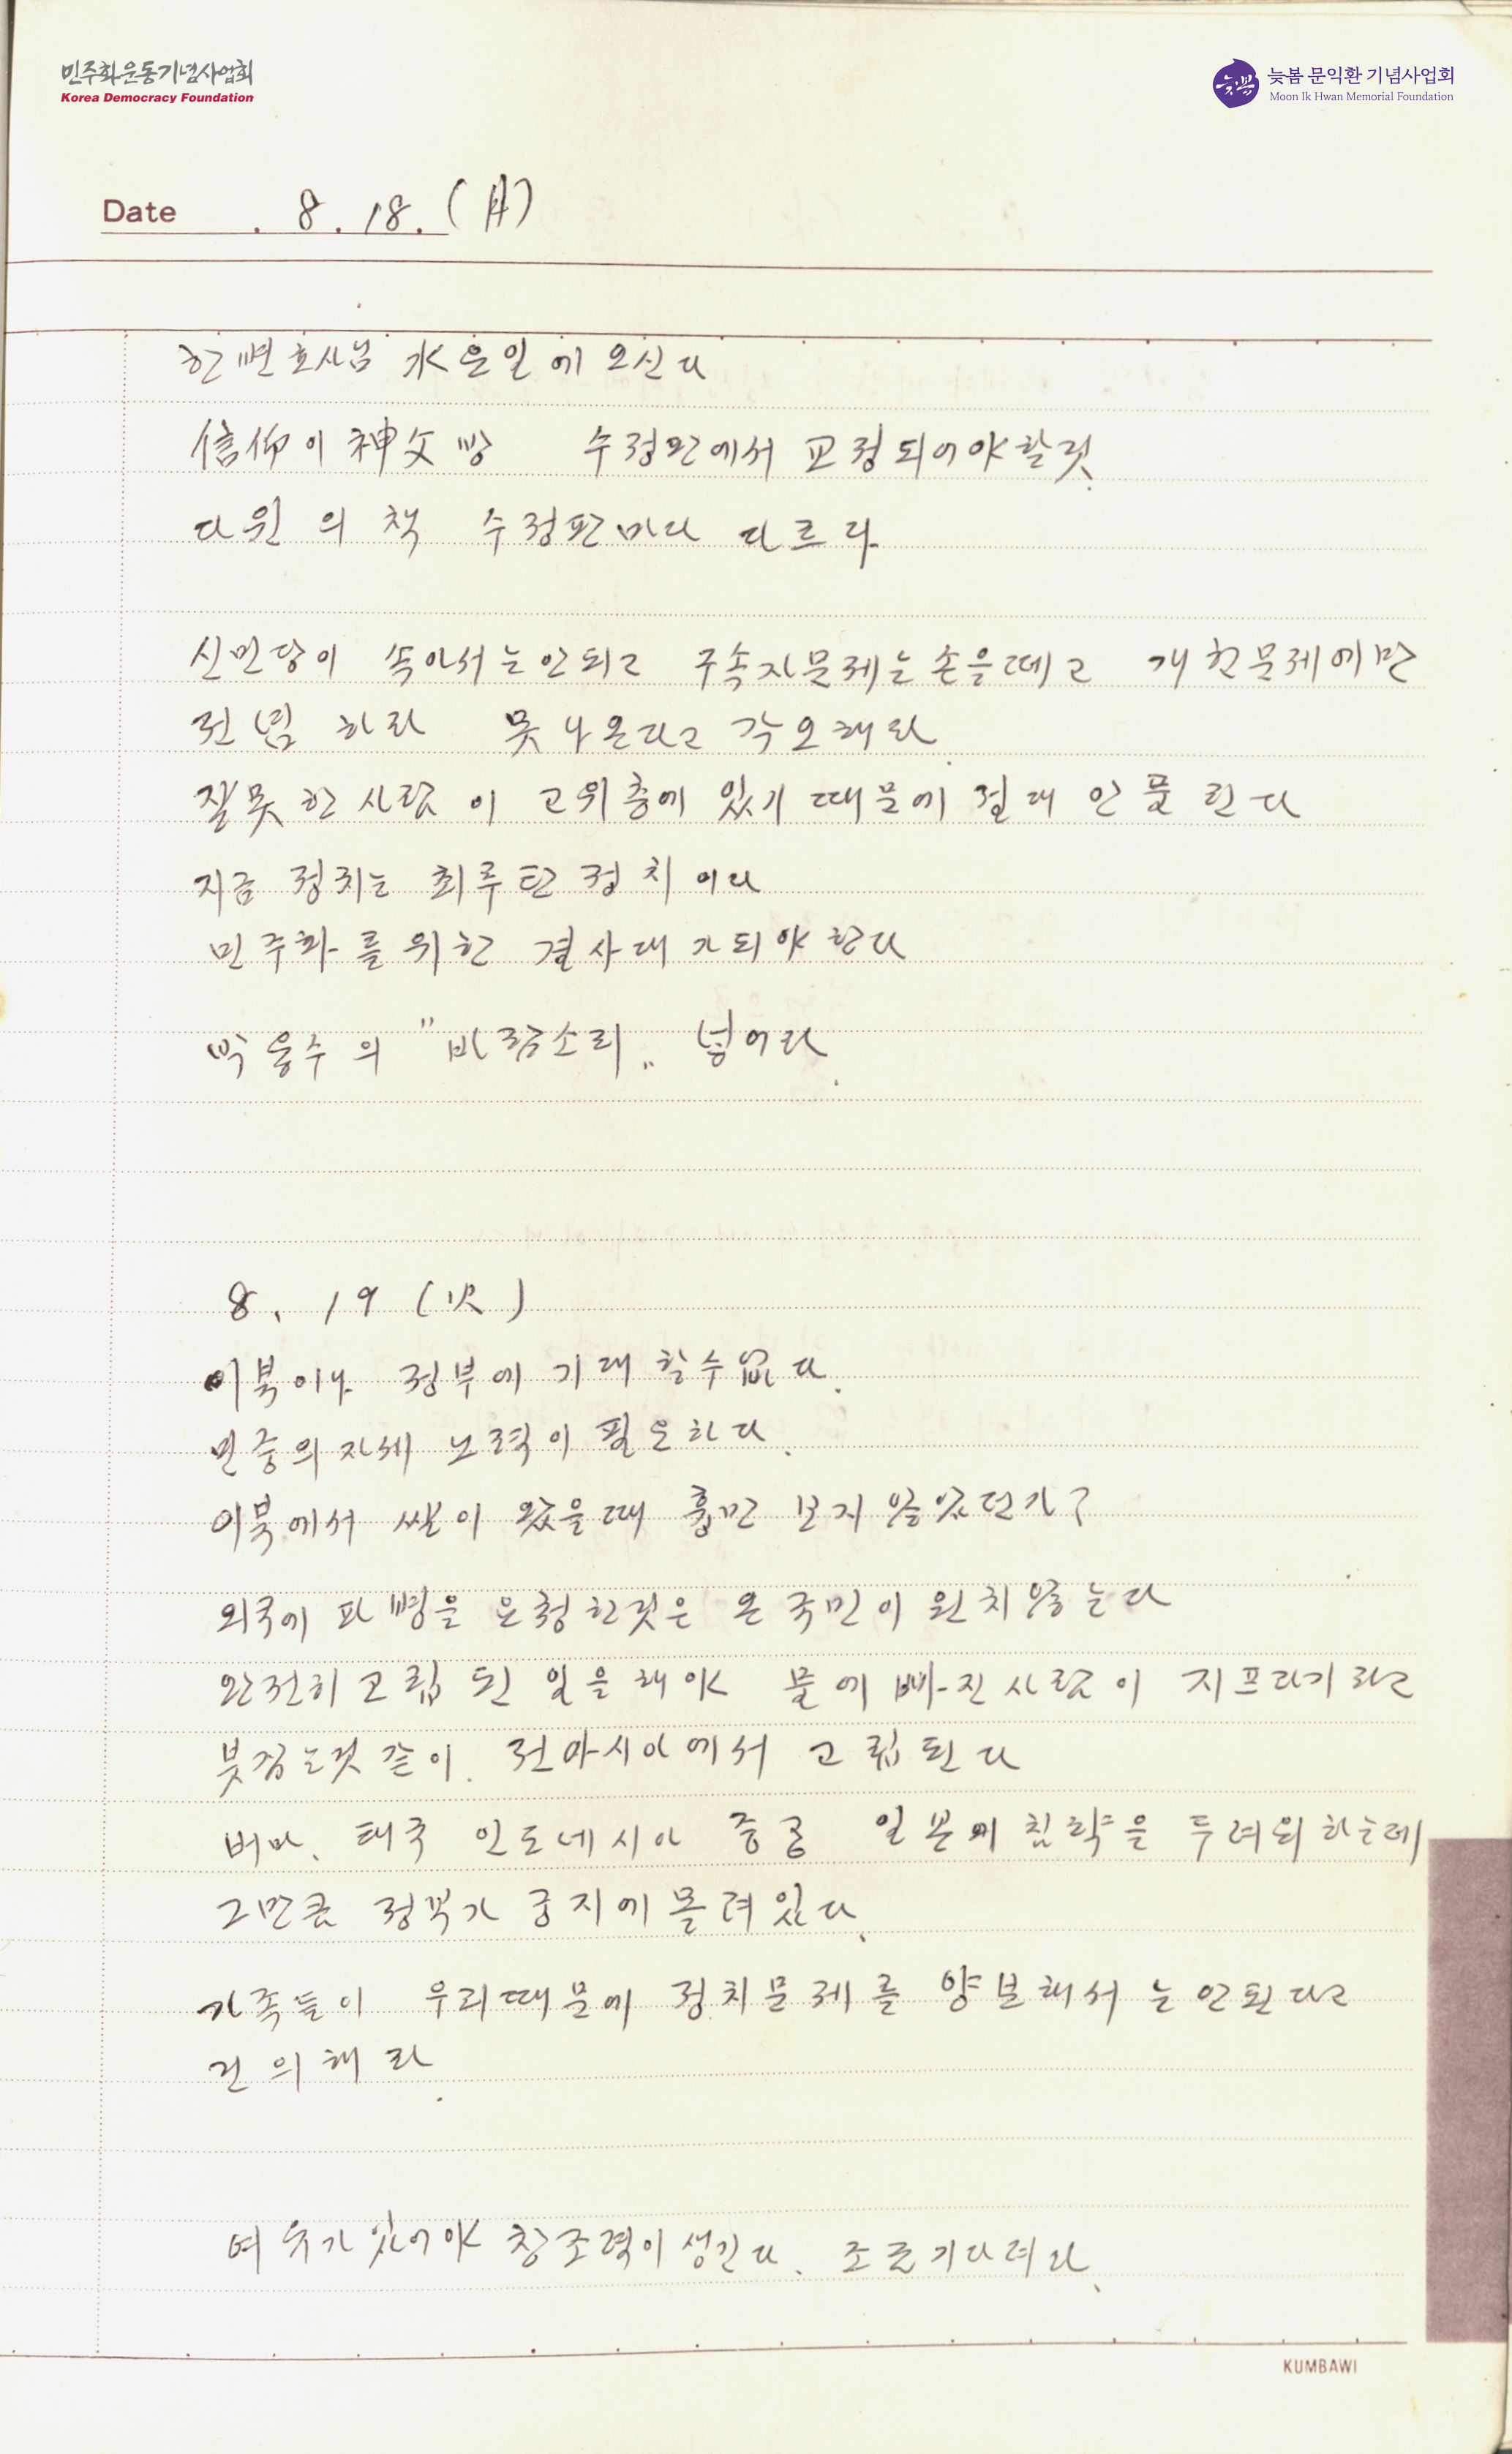 민주화운동기념사업회
Korea Democracy Foundation
늦봄 문익환 기념사업회
Moon Ik Hwan Memorial Foundation
Date . 8 . 18 . (月)
한변호사님 水요일에 오신다
信仰이 神父방 수정판에서 교정되어야할것.
다윈의 책 수정판마다 다르다
신민당이 속아서는안되고 구속자문제는손을떼고 개헌문제에만
전념 하라 못나온다고 각오해라.
잘못한사람이 고위층에 있기때문에 절대 안풀린다
지금 정치는 최루탄정치이다
민주화를위한 결사대가되야한다
박용수의 "바람소리" 넣어라.
8. 19 (火)
이북이나 정부에 기대할수없다.
민중의자세 노력이 필요하다.
이북에서 쌀이 왔을때 흉만 보지않았던가?
외국에 파병을 요청한것은 온국민이 원치않는다
완전히고립된 일을해야 물에빠진사람이 지프라기라고
붓잡는것같이. 전아시아에서 고립된다
버마. 태국 인도네시아 중공 일본에침략을 두려워하는데
그만큼 정부가 궁지에몰려있다.
가족들이 우리때문에 정치문제를 양보해서는안된다고
건의해라.
여유가있어야 창조력이생긴다. 조금기다려라.
KUMBAWI